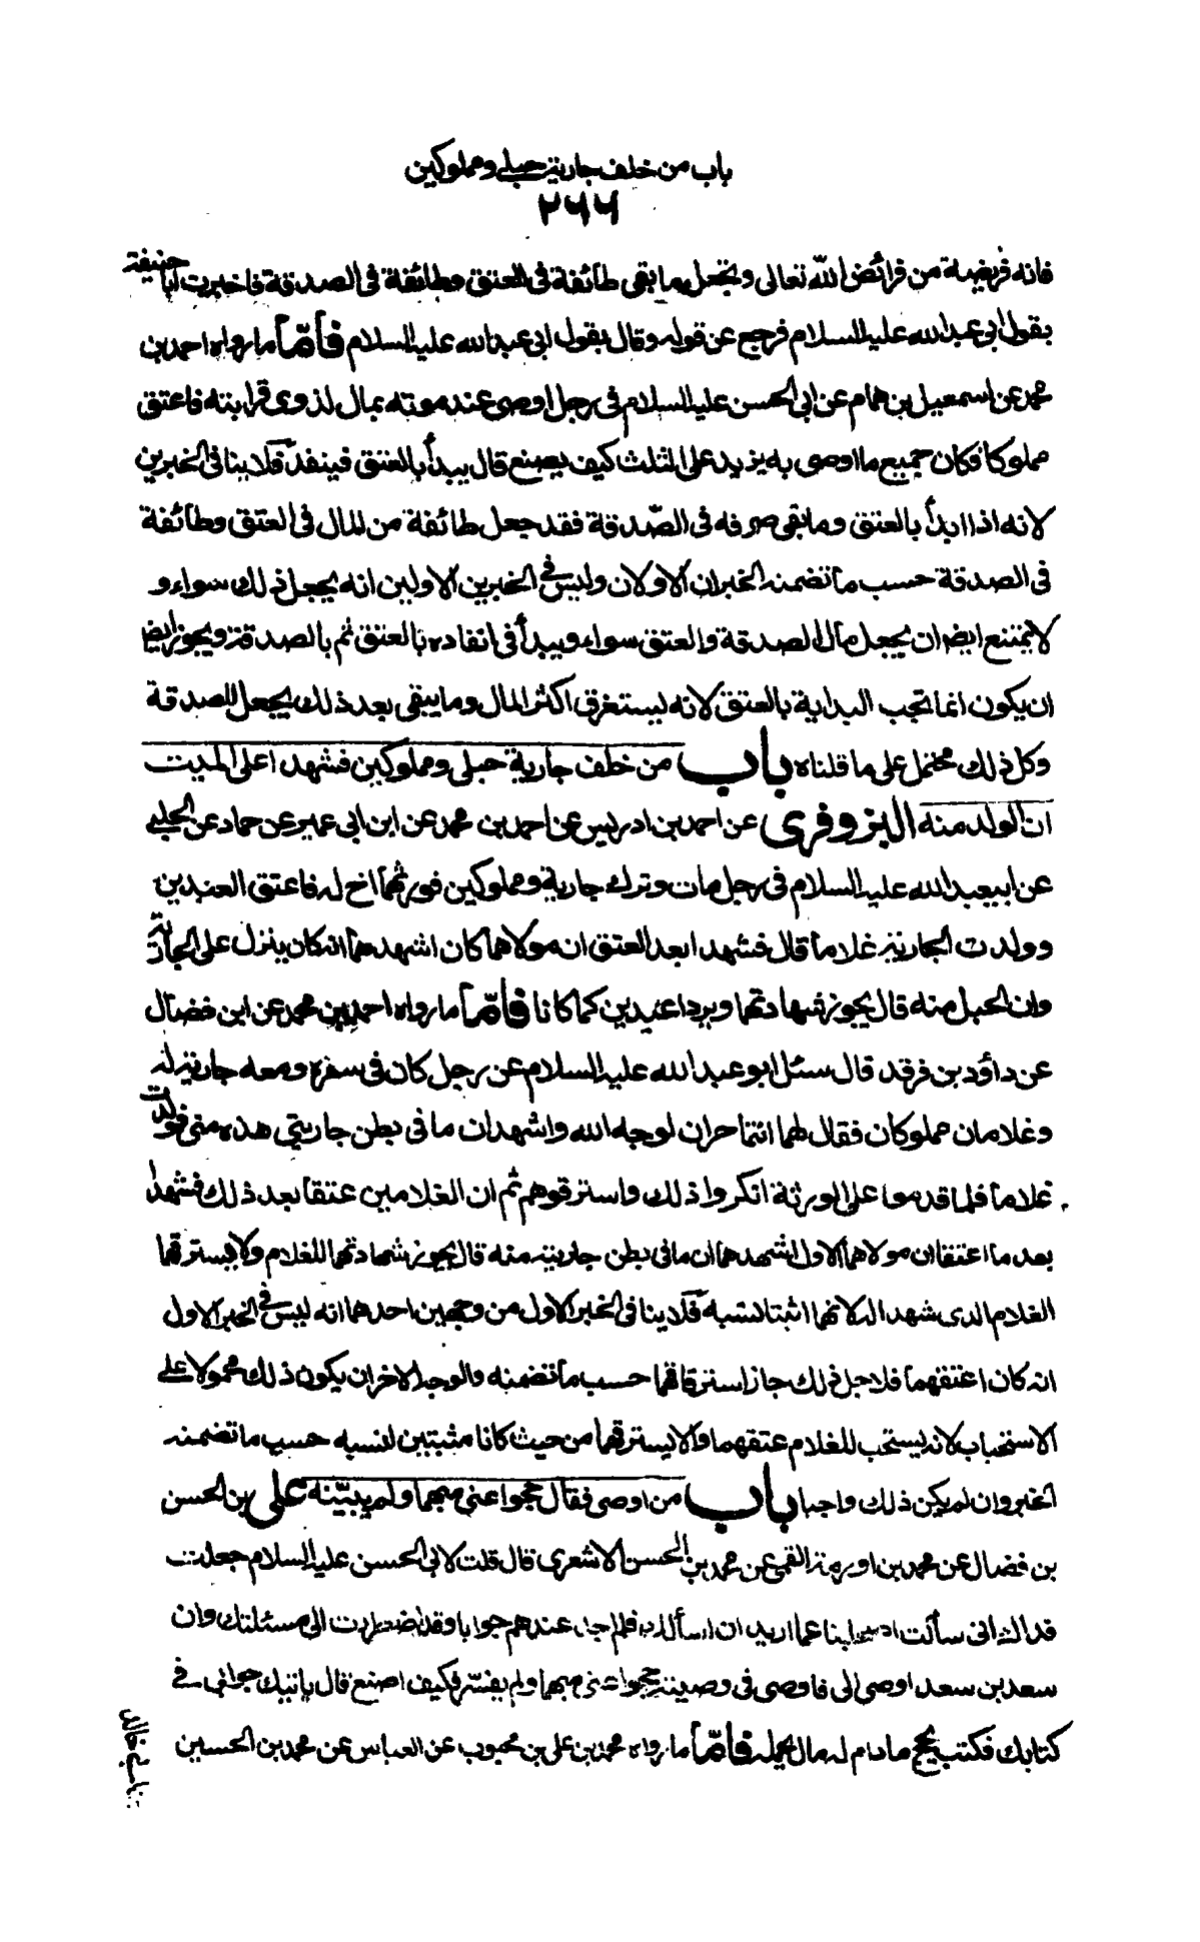 باب من خلف جارية حبلى ومملوكين
٢٦٦
فانه فريضة من فرائض الله تعالى وتجعل ما بقى طائفة فى العتق وطائفة فى الصدقة فاخبرت ابا حنيفة
بقول ابى عبد الله عليه السلام فرجع عن قوله وقال بقول ابى عبد الله عليه السلام فأمّا ما رواه احمد بن
محمد عن اسمعيل بن همام عن ابى الحسن عليه السلام فى رجل اوصى عند موته بمال لذوى قرابته فاعتق
مملوكا فكان جميع ما اوصى به يزيد على الثلث كيف يصنع قال يبدأ بالعتق فينفذ فلا ينافى الخبرين
لانه اذا ابدأ بالعتق وما بقى صرفه فى الصّدقة فقد جعل طائفة من المال فى العتق وطائفة
فى الصدقة حسب ما تضمنه الخبران الاولان وليس فى الخبرين الاولين انه يجعل ذلك سواء و
لا يمتنع ايضا ان يجعل مال الصدقة والعتق سواء ويبدأ فى انفاده بالعتق ثم بالصدقة ويجوز ايضا
ان يكون انما تجب البداية بالعتق لانه ليستغرق اكثر المال وما يبقى بعد ذلك يجعل للصدقة
وكل ذلك محتمل على ما قلناه باب من خلف جارية حبلى ومملوكين فشهدا على الميت
ان الولد منه البزوفرى عن احمد بن ادريس عن احمد بن محمد عن ابن ابى عمير عن حماد عن الحلبى
عن ابيعبد الله عليه السلام فى رجل مات وترك جارية ومملوكين فورثهما اخ له فاعتق العبدين
وولدت الجارية غلاما قال فشهدا بعد العتق ان مولاهما كان اشهدهما انه كان ينزل على الجارية
وان الحبل منه قال يجوز شهادتهما ويردا عبدين كما كانا فأمّا ما رواه احمد بن محمد عن ابن فضال
عن داؤد بن فرقد قال سئل ابو عبد الله عليه السلام عن رجل كان فى سفره ومعه جارية له
وغلامان مملوكان فقال لهما انتما حران لوجه الله واشهد ان ما فى بطن جاريتى هذه منى فولدت
غلاما فلما قدموا على الورثة انكروا ذلك واسترقوهم ثم ان الغلامين عتقا بعد ذلك فشهدا
بعد ما اعتقا ان مولاهما الاول اشهدهما ان ما فى بطن جاريته منه قال يجوز شهادتهما للغلام ولا يسترقهما
الغلام الذى شهدا له لانهما اثبتا نسبه فلا ينافى الخبر الاول من وجهين احدهما انه ليس فى الخبر الاول
انه كان اعتقهما فلاجل ذلك جاز استرقاقهما حسب ما تضمنه والوجه الاخر ان يكون ذلك محمولا على
الاستحباب لانه يستحب للغلام عتقهما والا يسترقهما من حيث كانا مثبتين لنسبه حسب ما تضمنه
الخبر وان لم يكن ذلك واجبا باب من اوصى فقال حجوا عنى مبهما ولم يبيّنه على بن الحسن
بن فضال عن محمد بن اورمة القمى عن محمد بن الحسن الاشعرى قال قلت لابى الحسن عليه السلام جعلت
فداك انى سألت اصحابنا عما اريد ان اسألك فلم اجد عندهم جوابا وقد اضطررت الى مسئلتك وان
سعد بن سعد اوصى الى فاوصى فى وصيته حجوا عنى مبهما ولم يفسّر فكيف اصنع قال ياتيك جوابى فى
كتابك فكتب يحج ما دام له مال يحمله فأمّا ما رواه محمد بن على بن محبوب عن العباس عن محمد بن الحسين